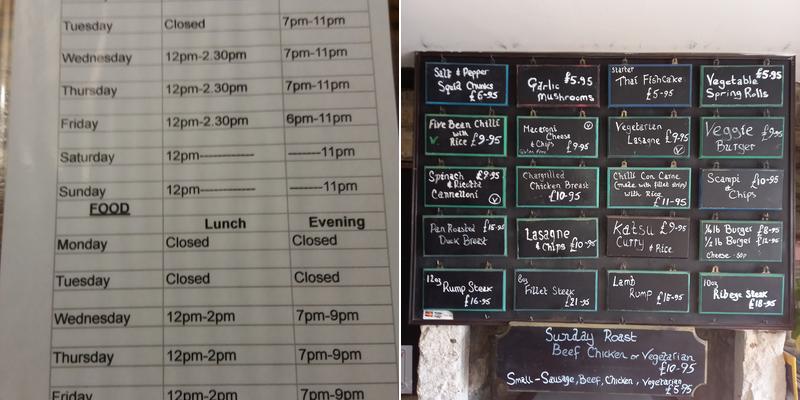 Tuesday Closed 7pm-11pm
Wednesday 12pm-2.30pm 7pm-11pm
Thursday 12pm-2.30pm 7pm-11pm
Friday 12pm-2.30pm 6pm-11pm
Saturday 12pm------------ -------11pm
Sunday 12pm------------ -------11pm
FOOD
Lunch Evening
Monday Closed Closed
Tuesday Closed Closed
Wednesday 12pm-2pm 7pm-9pm
Thursday 12pm-2pm 7pm-9pm
Friday 12pm-2pm 7pm-9pm
Salt & Pepper
Squid Chunks
£6-95
£5.95
Garlic
Mushrooms
Starter
Thai Fishcake
£5-95
£5-95
Vegetable
Spring Rolls
Five Bean Chilli
with
Rice £9-95
Macaroni V
Cheese
& Chips
£9.95
Vegetarian
Lasagne £9-95
V
Veggie £9-95
Burger
Spinach £9-95
& Ricotta
Cannelloni V
Chargrilled
Chicken Breast
£10-95
Chilli Con Carne
(made with fillet strips)
with Rice
£11-95
Scampi £10-95
&
Chips
Pan Roasted £15-95
Duck Breast
Lasagne
& Chips £10-95
Katsu £9-95
Curry & Rice
1/4lb Burger £8-95
1/2lb Burger £12-95
Cheese - 50p
12oz
Rump Steak
£16-95
8oz
Fillet Steak
£21-95
Lamb
Rump £15-95
10oz
Ribeye Steak
£18-95
Sunday Roast
Beef Chicken or Vegetarian
£10-95
Small - Sausage, Beef, Chicken, Vegetarian
£5.95